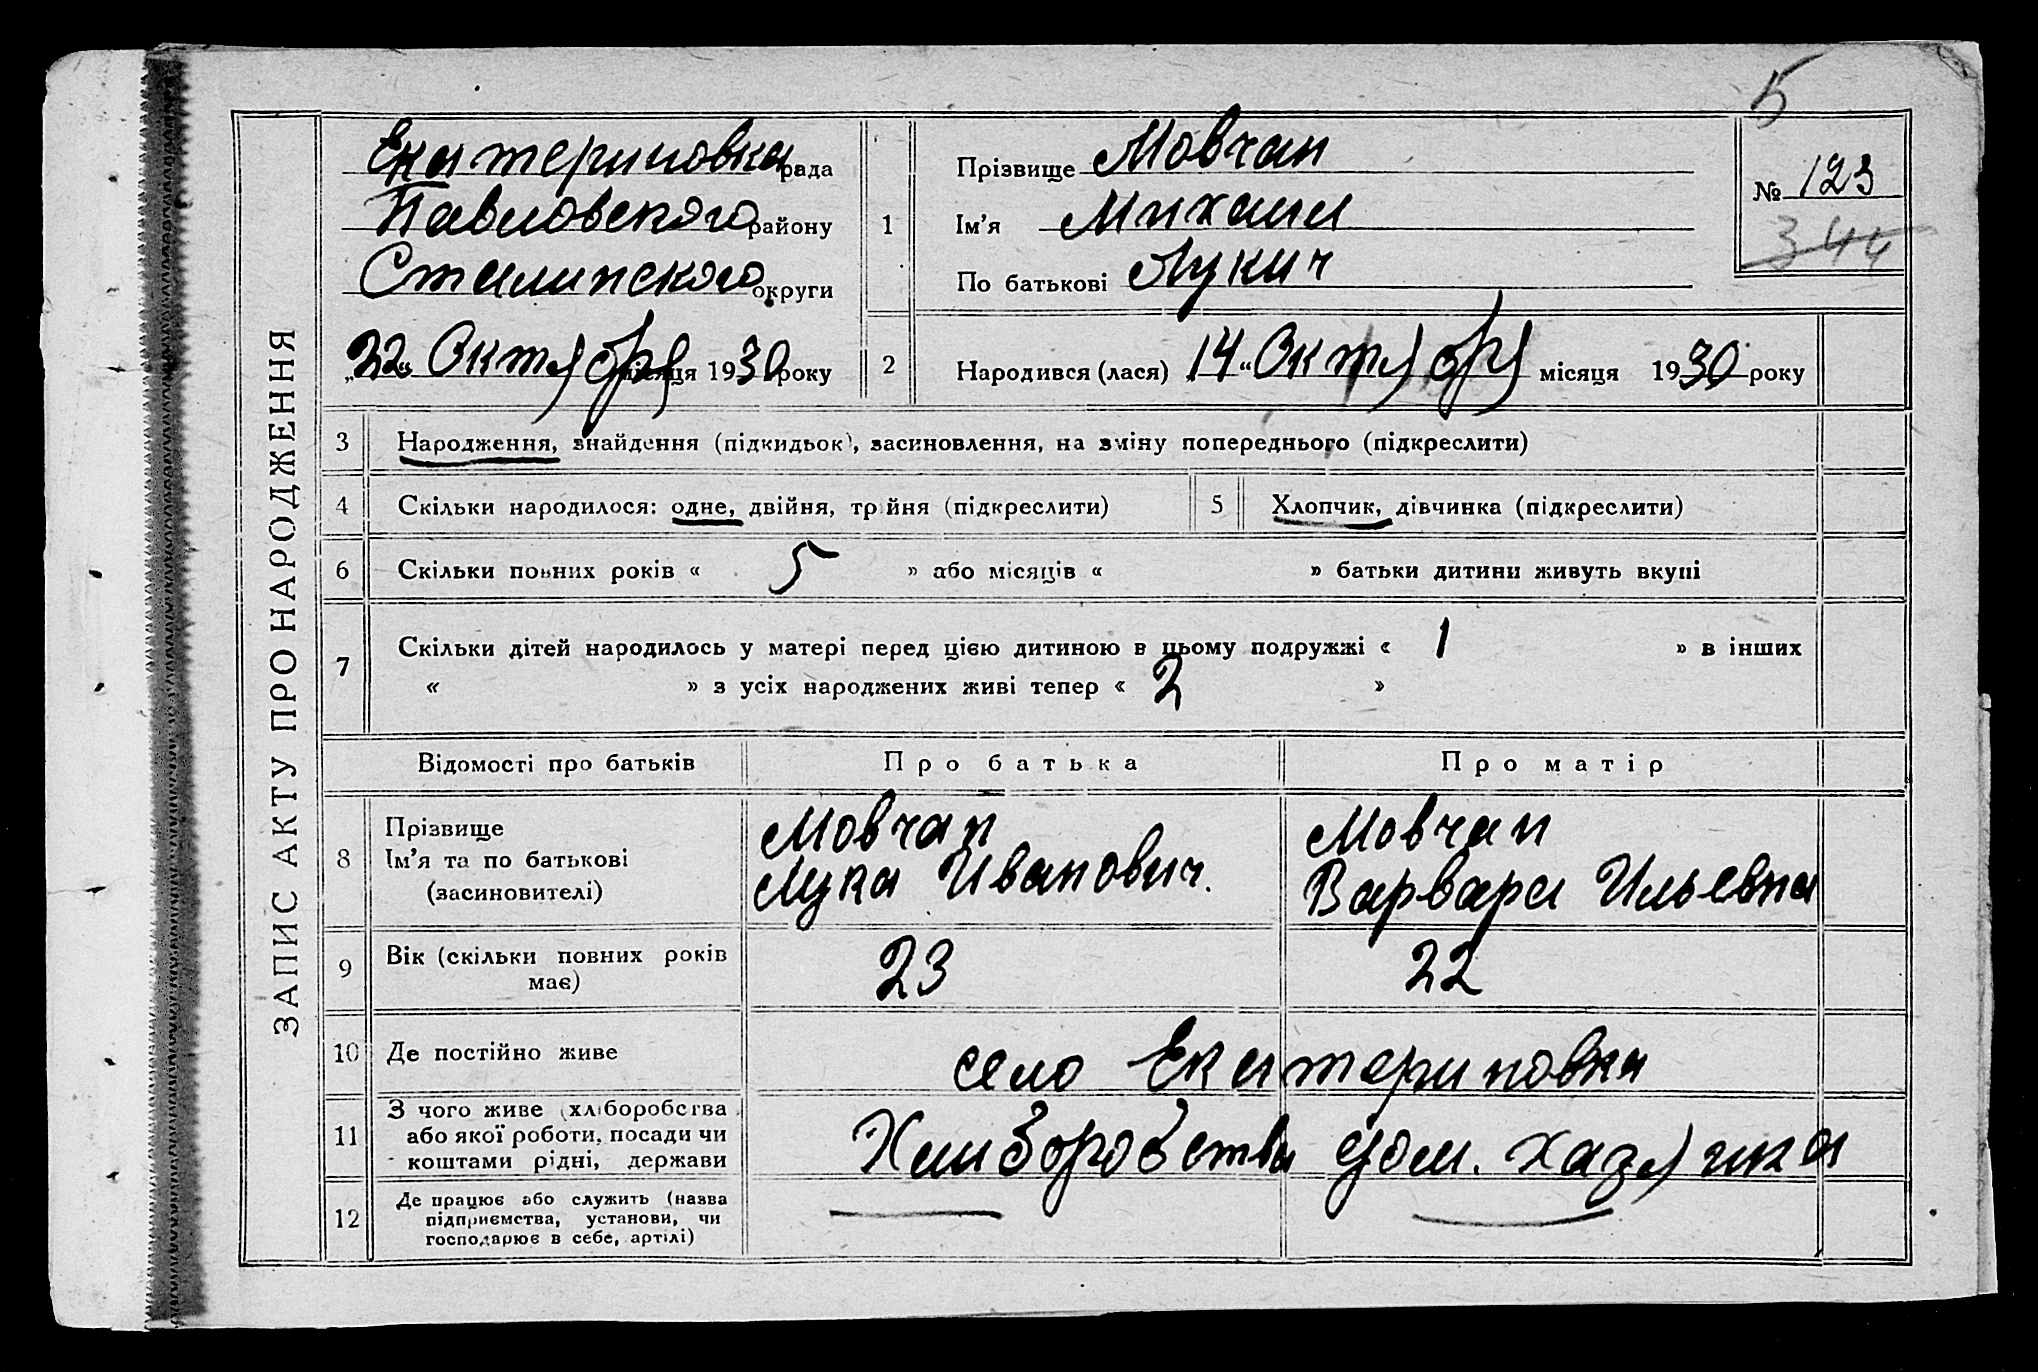 5
ЗАПИС АКТУ ПРО НАРОДЖЕННЯ
Екатериновка рада
Павловского району
Сталинского округи
„22“ Октября місяця 1930 року
1
Прізвище Мовчан
Ім’я Михаил
По батькові Лукич
№ 123
344
2 Народився (лася) „14“ Октября місяця 1930 року
3 Народження, знайдення (підкидьок), засиновлення, на зміну попереднього (підкреслити)
4 Скільки народилося: одне, двійня, трійня (підкреслити) 5 Хлопчик, дівчинка (підкреслити)
6 Скільки повних років « 5 » або місяців « » батьки дитини живуть вкупі
7 Скільки дітей народилось у матері перед цією дитиною в цьому подружжі « 1 » в інших
« » з усіх народжених живі тепер « 2 »
Відомості про батьків Про батька Про матір
8 Прізвище
Ім’я та по батькові
(засиновителі)
Мовчан
Лука Иванович.
Мовчан
Варвара Ильевна
9 Вік (скільки повних років
має)
23 22
10 Де постійно живе село Екатериновка
11 З чого живе (хліборобства
або якої роботи, посади чи
коштами рідні, держави
Хлиборобства дом. хазяика
12 Де працює або служить (назва
підприємства, установи, чи
господарює в себе, артілі)